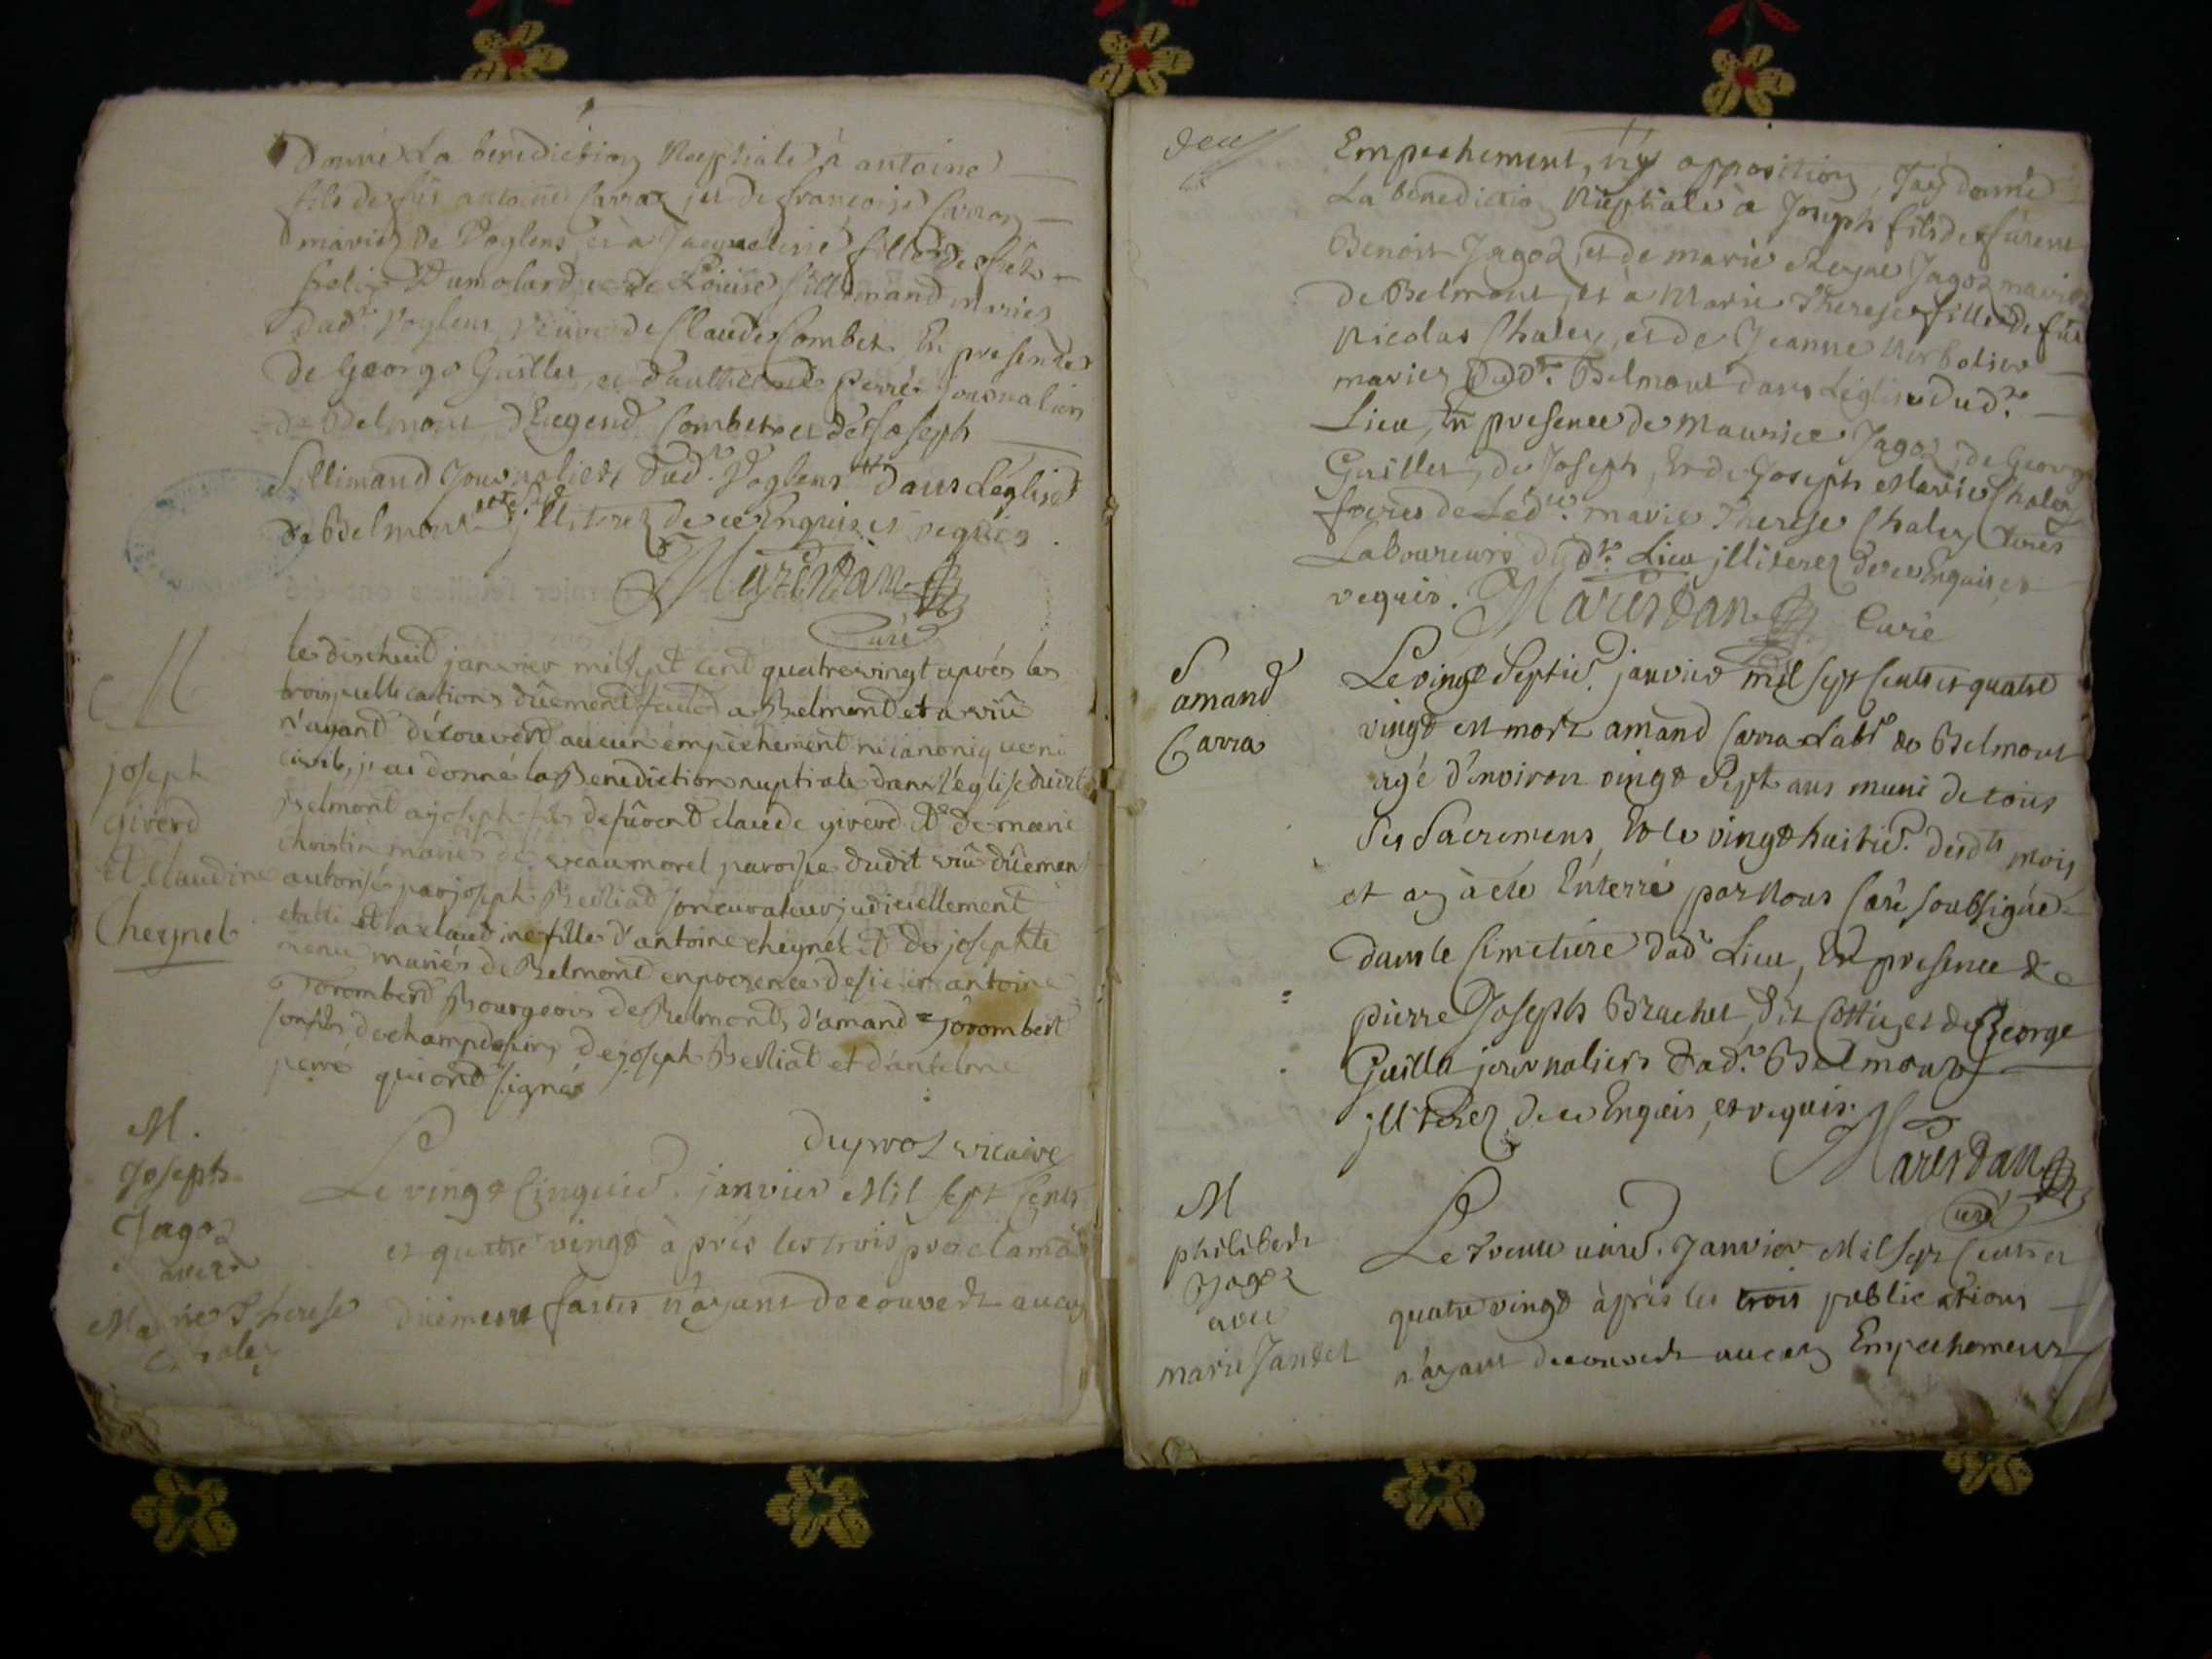 donné La benediction Nuptiale à antoine
fils de feu antoine Carraz, et de françoise Carron
mariéz de Poglens, et à Jacqueline fille de feu
felix Dumolard, et de Loüise Sillimand mariés
dud.t Poglens, veüve de Claude Combet En presence
de George Guillet, et d'anthelme perré journaliers
de Belmont d'Eugend Combet et de Joseph
Sillimand Journaliers dud.t Poglens dans L'église
de Belmont illiterez de ce Enquis et requis.
Marestan
Curé
M
joseph
giverd
et claudine
Cheynet
le dixhuit janvier mil sept cent quatrevingt aprés les
trois publications dûement faites a Belmont et a viû
n'ayant découvert aucun empêchement ni canonique ni
civil, j'ai donné la Benediction nuptiale dans l'église dudit
Belmont a joseph fils de fûent claude giverd et de marie
christin mariés de vraumorel paroisse dudit viû dûement
autorisé par joseph Belliad son curateur judiciellement
etabli et a claudine fille d'antoine cheynet et de josephte
menu mariés de Belmont en presence de sieur antoine
jorombert Bourgeois de Belmont, d'amand jorombert
son fils de champdosin, de joseph Belliat et d'antelme
perré qui ont signés
duproz vicaire
M.
Joseph
Jagoz
avec
Marie Therese
Chaley
Le vingt Cinquie. janvier Mil sept Cents
et quatre vingt à prés les trois proclama.
düement faites n'ayant decouvert aucun
deux
Empechement, ny opposition, J'ay donné
La benediction Nüptiale à Joseph fils de fûrent
Benoit Jagoz, et de marie Reyne Jagoz mariéz
de Belmont, et à Marie Therese fille de feu
Nicolas Chaley, et de Jeanne
mariez dud.t Belmont dans L'église dud.t
Lieu, En presence de Maurice Jagoz, de George
Guillet, de Joseph, Et de Joseph Marie Chaley
freres de Led.te marie Therese Chaley tous
Laboureurs dud.t Lieu illiterez de ce Enquis, et
requis. Marestan Curé
S
amand
Carra
Le vingt Septie. janvier mil sept Cents et quatre
vingt est mort amand Carra Lab.r de Belmont
agé d'environ vingt Sept ans muni de tous
Ses Sacremens, Et le vingt huitie. desd.ts mois
et an à été Enterré par Nous Curé soubsigné
dans le Cimetiere dud.t Lieu, En presence de
pierre Joseph Brachet, dit Cottie, et de George
Guillet journaliers dud.t Belmont
illiterez de ce Enquis, et requis.
Marestan
Curé
M
philibert
Jagoz
avec
marie Jandet
Le trente unie. Janvier Mil Sept Cents et
quatre vingt àprés les trois publications
n'ayant decouvert aucun Empechement